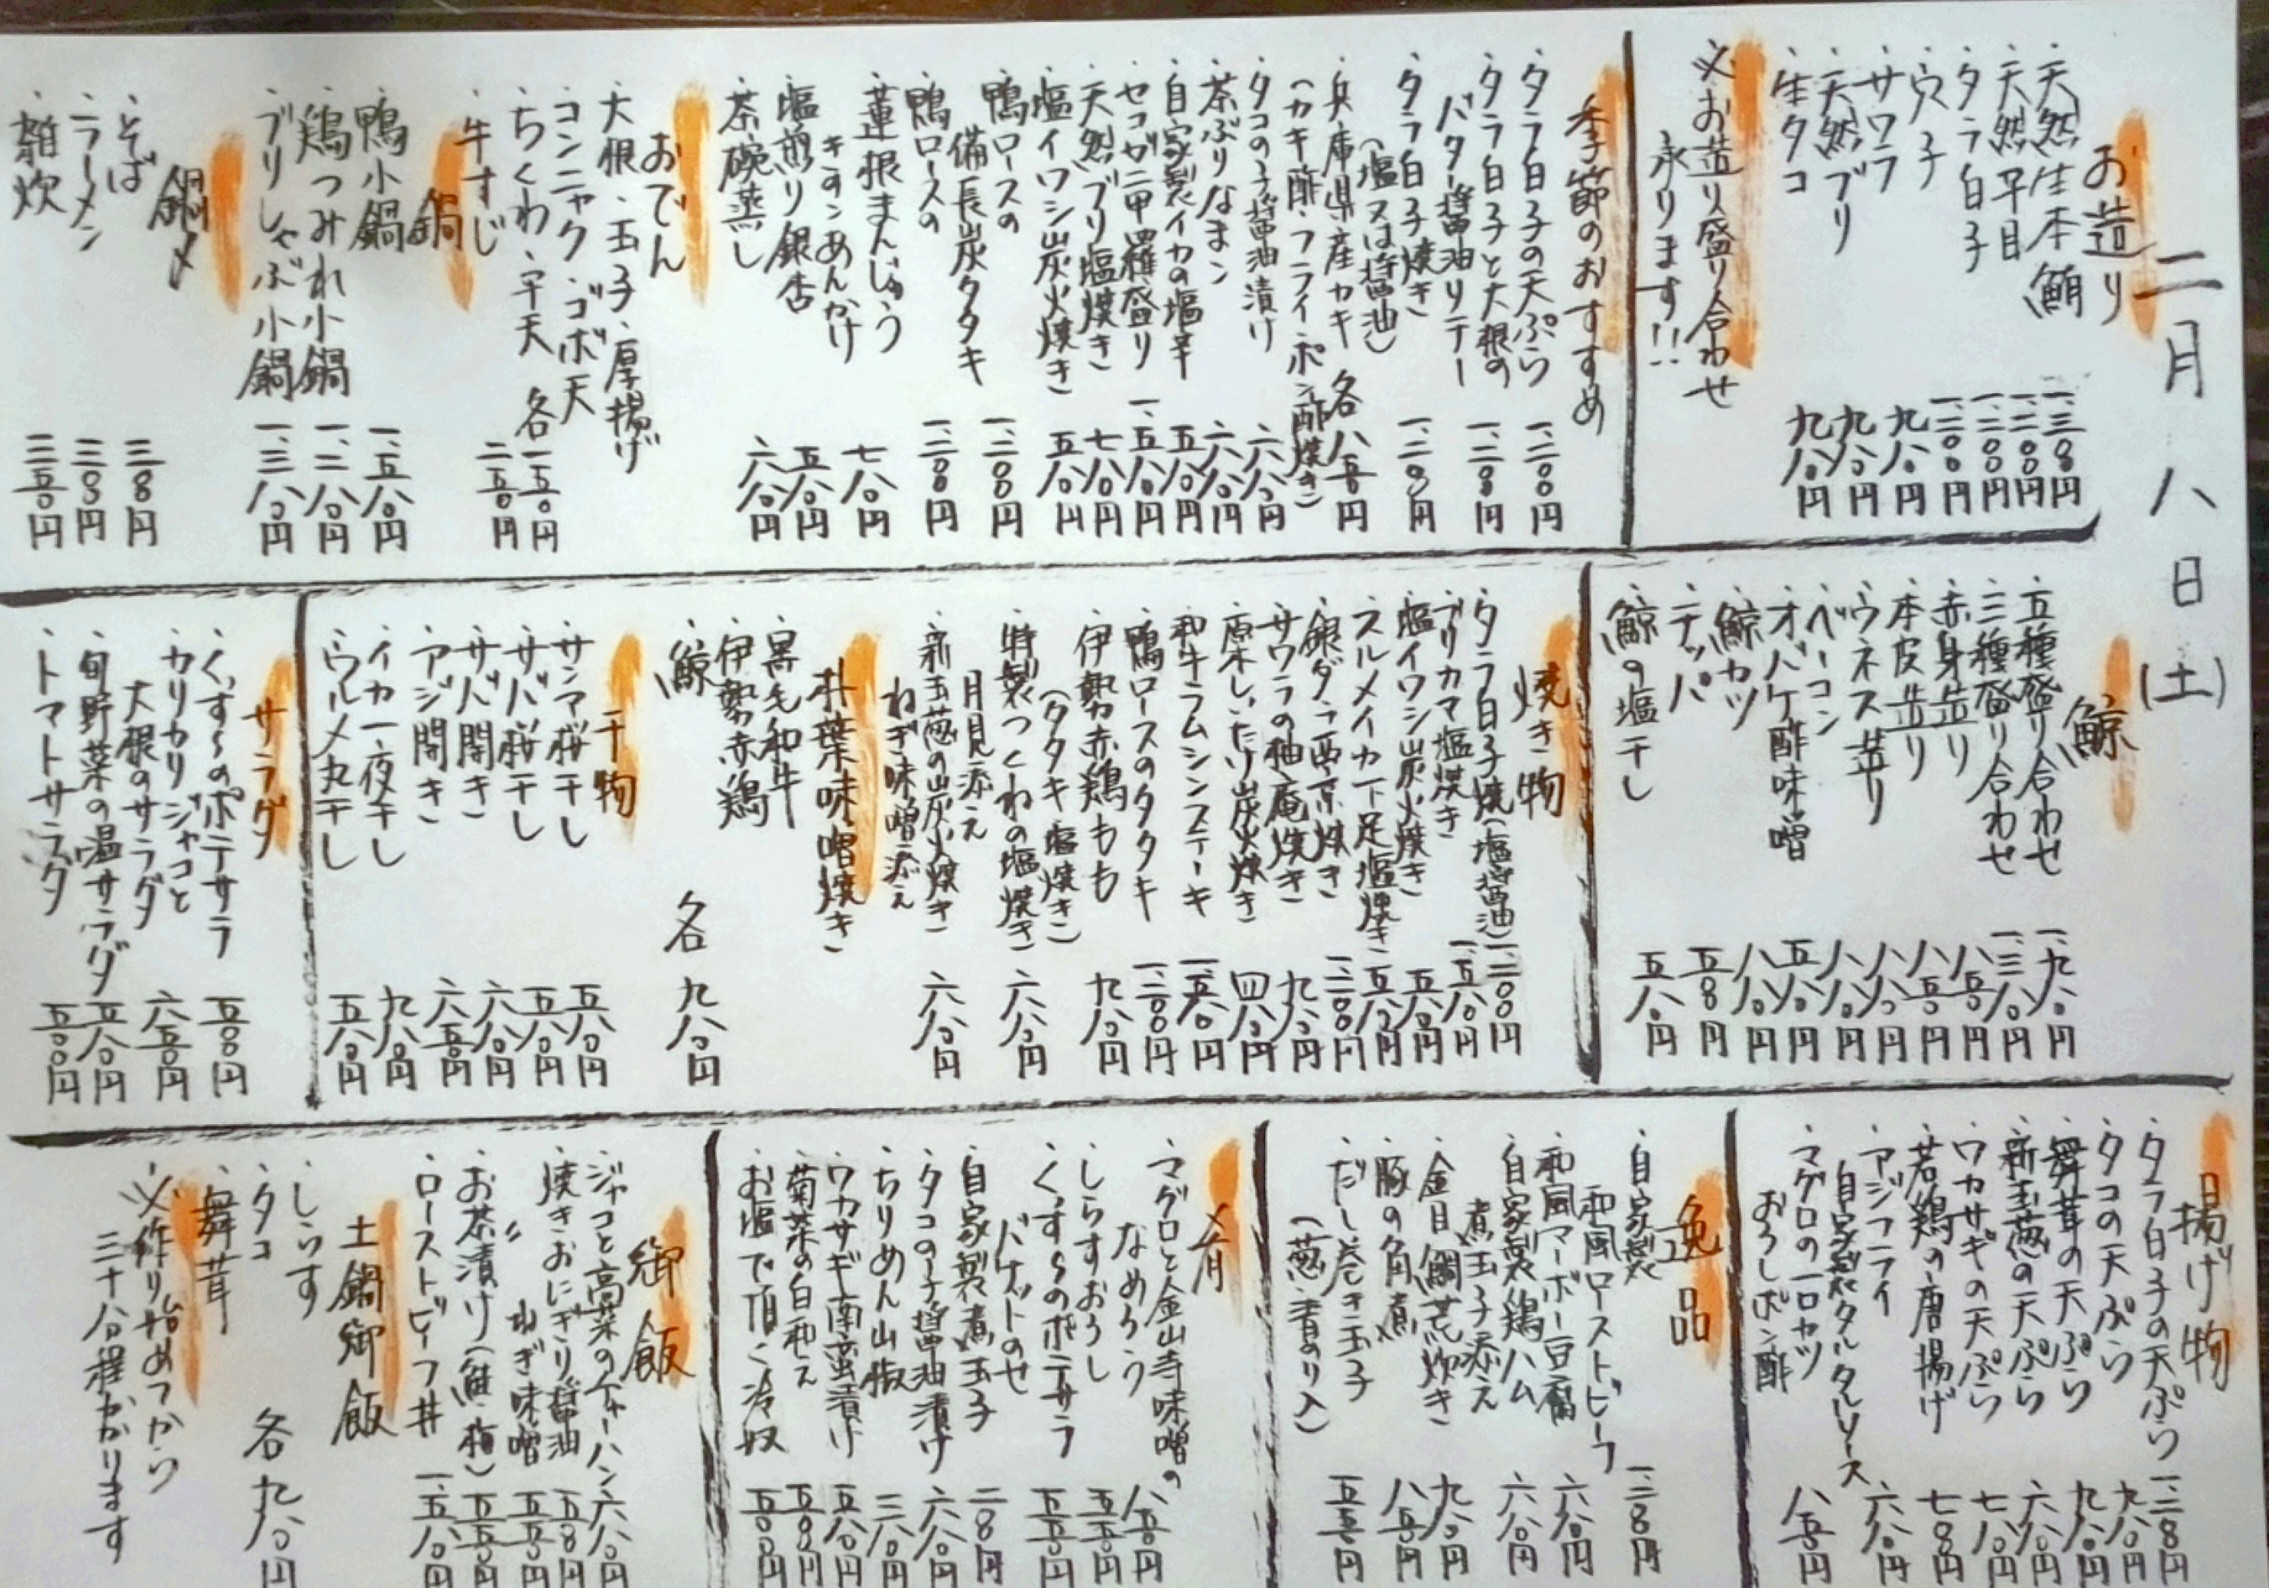 二月八日(土)
お造り
・天然生本鮪 一、三八〇円
・天然平目 一、二〇〇円
・タラ白子 一、二〇〇円
・穴子 一、二〇〇円
・サワラ 九八〇円
・天然ブリ 九八〇円
・生タコ 九八〇円
※お造り盛り合わせ
承ります!!
季節のおすすめ
・タラ白子の天ぷら 一、二〇〇円
・タラ白子と大根の
バター醤油ソテー 一、二八〇円
・タラ白子焼き
(塩又は醤油) 一、二〇〇円
・兵庫県産カキ 各八五〇円
(カキ酢・フライ・ポン酢焼き)
・タコの子醤油漬け 六八〇円
・茶ぶりなまこ 六八〇円
・自家製イカの塩辛 五八〇円
・セコガニ甲羅盛り 一、五八〇円
・天然ブリ塩焼き 七八〇円
・塩イワシ炭火焼き 五八〇円
・鴨ロースの
備長炭タタキ 一、二〇〇円
・鴨ロースの
一、二〇〇円
・蓮根まんじゅう
キノコあんかけ 七八〇円
・塩煎り銀杏 五八〇円
・茶碗蒸し 六八〇円
おでん
・大根・玉子・厚揚げ
・コンニャク・ゴボ天
・ちくわ・平天 各一五〇円
・牛すじ 二五〇円
鍋
・鴨小鍋 一、五八〇円
・鶏つみれ小鍋 一、二八〇円
・ブリしゃぶ小鍋 一、三八〇円
鍋〆
・そば 三八〇円
・ラーメン 三〇〇円
・雑炊 三五〇円
鯨
・五種盛り合わせ 一、九八〇円
・三種盛り合わせ 一、三八〇円
・赤身造り 八五〇円
・本皮造り 八五〇円
・ウネス造り 八八〇円
・ベーコン 八八〇円
・オバケ酢味噌 五八〇円
・鯨カツ 八八〇円
・テッパ 五八〇円
・鯨の塩干し 五八〇円
焼き物
・タラ白子焼(塩・醤油) 一、二〇〇円
・ブリカマ塩焼き 一、五八〇円
・塩イワシ炭火焼き 五八〇円
・スルメイカ下足塩焼き 五八〇円
・銀ダラ西京焼き 一、二〇〇円
・サワラの柚庵焼き 九八〇円
・原木しいたけ炭火焼き 四八〇円
・和牛ラムシンステーキ
・鴨ロースのタタキ 一、二〇〇円
・伊勢赤鶏もも
(タタキ・塩焼き) 九八〇円
・特製つくねの塩焼き
月見添え 六八〇円
・新玉葱の炭火焼き
ねぎ味噌添え 六八〇円
朴葉味噌焼き
・黒毛和牛
・伊勢赤鶏
・鯨
各九八〇円
干物
・サンマ桜干し 五八〇円
・サバ桜干し 五八〇円
・サバ開き 六八〇円
・アジ開き 六五〇円
・イカ一夜干し 九八〇円
・ウルメ丸干し 五八〇円
サラダ
・くず〜のポテサラ 五五〇円
・カリカリジャコと
大根のサラダ 六五〇円
・旬野菜の温サラダ 五八〇円
・トマトサラダ 五五〇円
揚げ物
・タラ白子の天ぷら 一、二八〇円
・タコの天ぷら 九八〇円
・舞茸の天ぷら 九八〇円
・新玉葱の天ぷら 六八〇円
・ワカサギの天ぷら 七八〇円
・若鶏の唐揚げ 七八〇円
・アジフライ
自家製タルタルソース 六八〇円
・マグロの一口カツ
おろしポン酢 八五〇円
逸品
・自家製
和風ローストビーフ 一、二八〇円
・和風マーボー豆腐 六八〇円
・自家製鶏ハム
煮玉子添え 六八〇円
・金目鯛荒炊き 九八〇円
・豚の角煮 八五〇円
・だし巻き玉子
(葱・青のり入) 五五〇円
〆肴
・マグロと金山寺味噌の
なめろう 八五〇円
・しらすおろし 五五〇円
・くず〜のポテサラ
バケットのせ 五五〇円
・自家製煮玉子 二八〇円
・タコの子醤油漬け 六八〇円
・ちりめん山椒 三八〇円
・ワカサギ南蛮漬け 五八〇円
・菊菜の白和え 五八〇円
・お塩で頂く冷奴 五五〇円
御飯
・ジャコと高菜のチャーハン 六八〇円
・焼きおにぎり醤油 五八〇円
・〃 ねぎ味噌 五五〇円
・お茶漬け(鮭・梅) 五五〇円
・ローストビーフ丼 一、五八〇円
土鍋御飯
・しらす
・タコ
・舞茸
各九八〇円
※作り始めてから
三十分程かかります